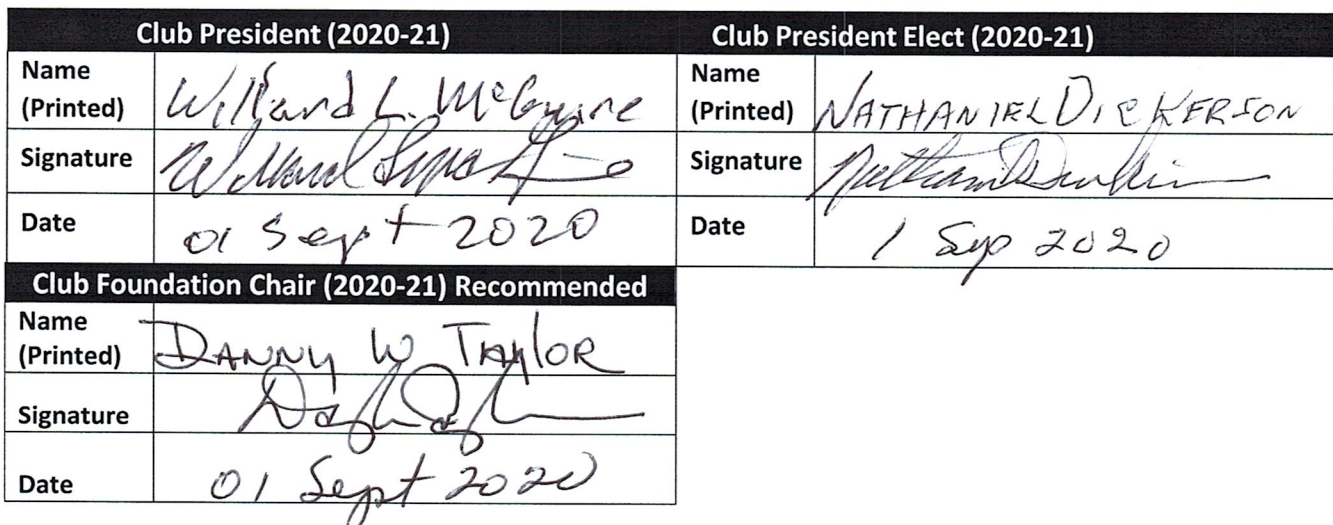 Club President (2020-21)
Name (Printed) Willard L. McGuire
Signature
Date 01 Sept 2020
Club President Elect (2020-21)
Name (Printed) NATHANIEL DICKERSON
Signature
Date 1 Sep 2020
Club Foundation Chair (2020-21) Recommended
Name (Printed) DANNY W TAYLOR
Signature
Date 01 Sept 2020